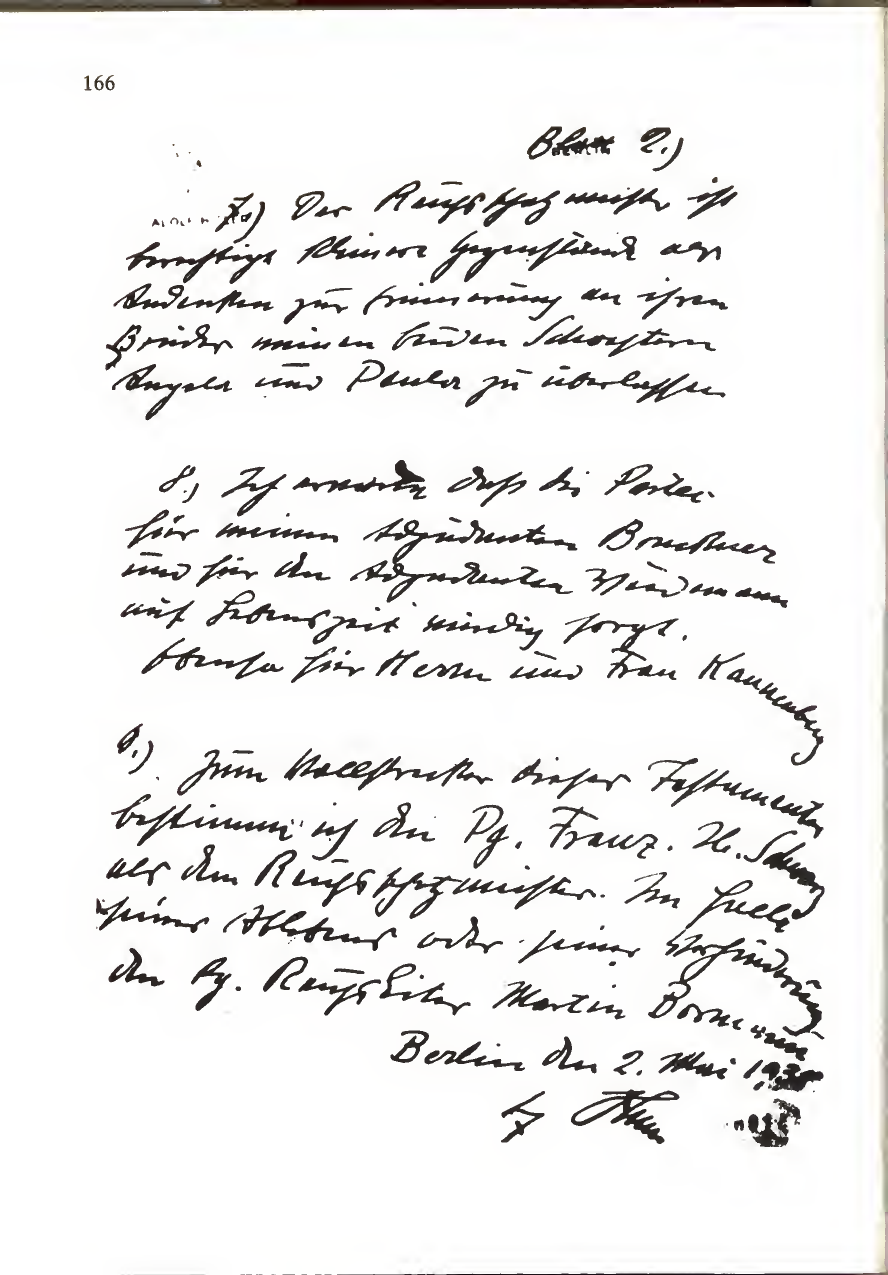 166
Blatt 2.)
ADOLF HITLER
7.) Der Reichsschatzmeister ist
berechtigt kleinere Gegenstände als
Andenken zur Erinnerung an ihren
Bruder meinen beiden Schwestern
Angela und Paula zu überlassen
8.) Ich erwarte daß die Partei
für meinen Adjudanten Brückner
und für den Adjudanten Wiedemann
auf Lebenszeit würdig sorgt.
Ebenso für Herrn und Frau Kannenberg
9.) Zum Vollstrecker dieses Testamentes
bestimme ich den Pg. Franz. X. Schwarz
als dem Reichsschatzmeister. Im Falle
seines Ablebens oder seiner Verhinderung
den Pg. Reichsleiter Martin Bormann
Berlin den 2. Mai 1938